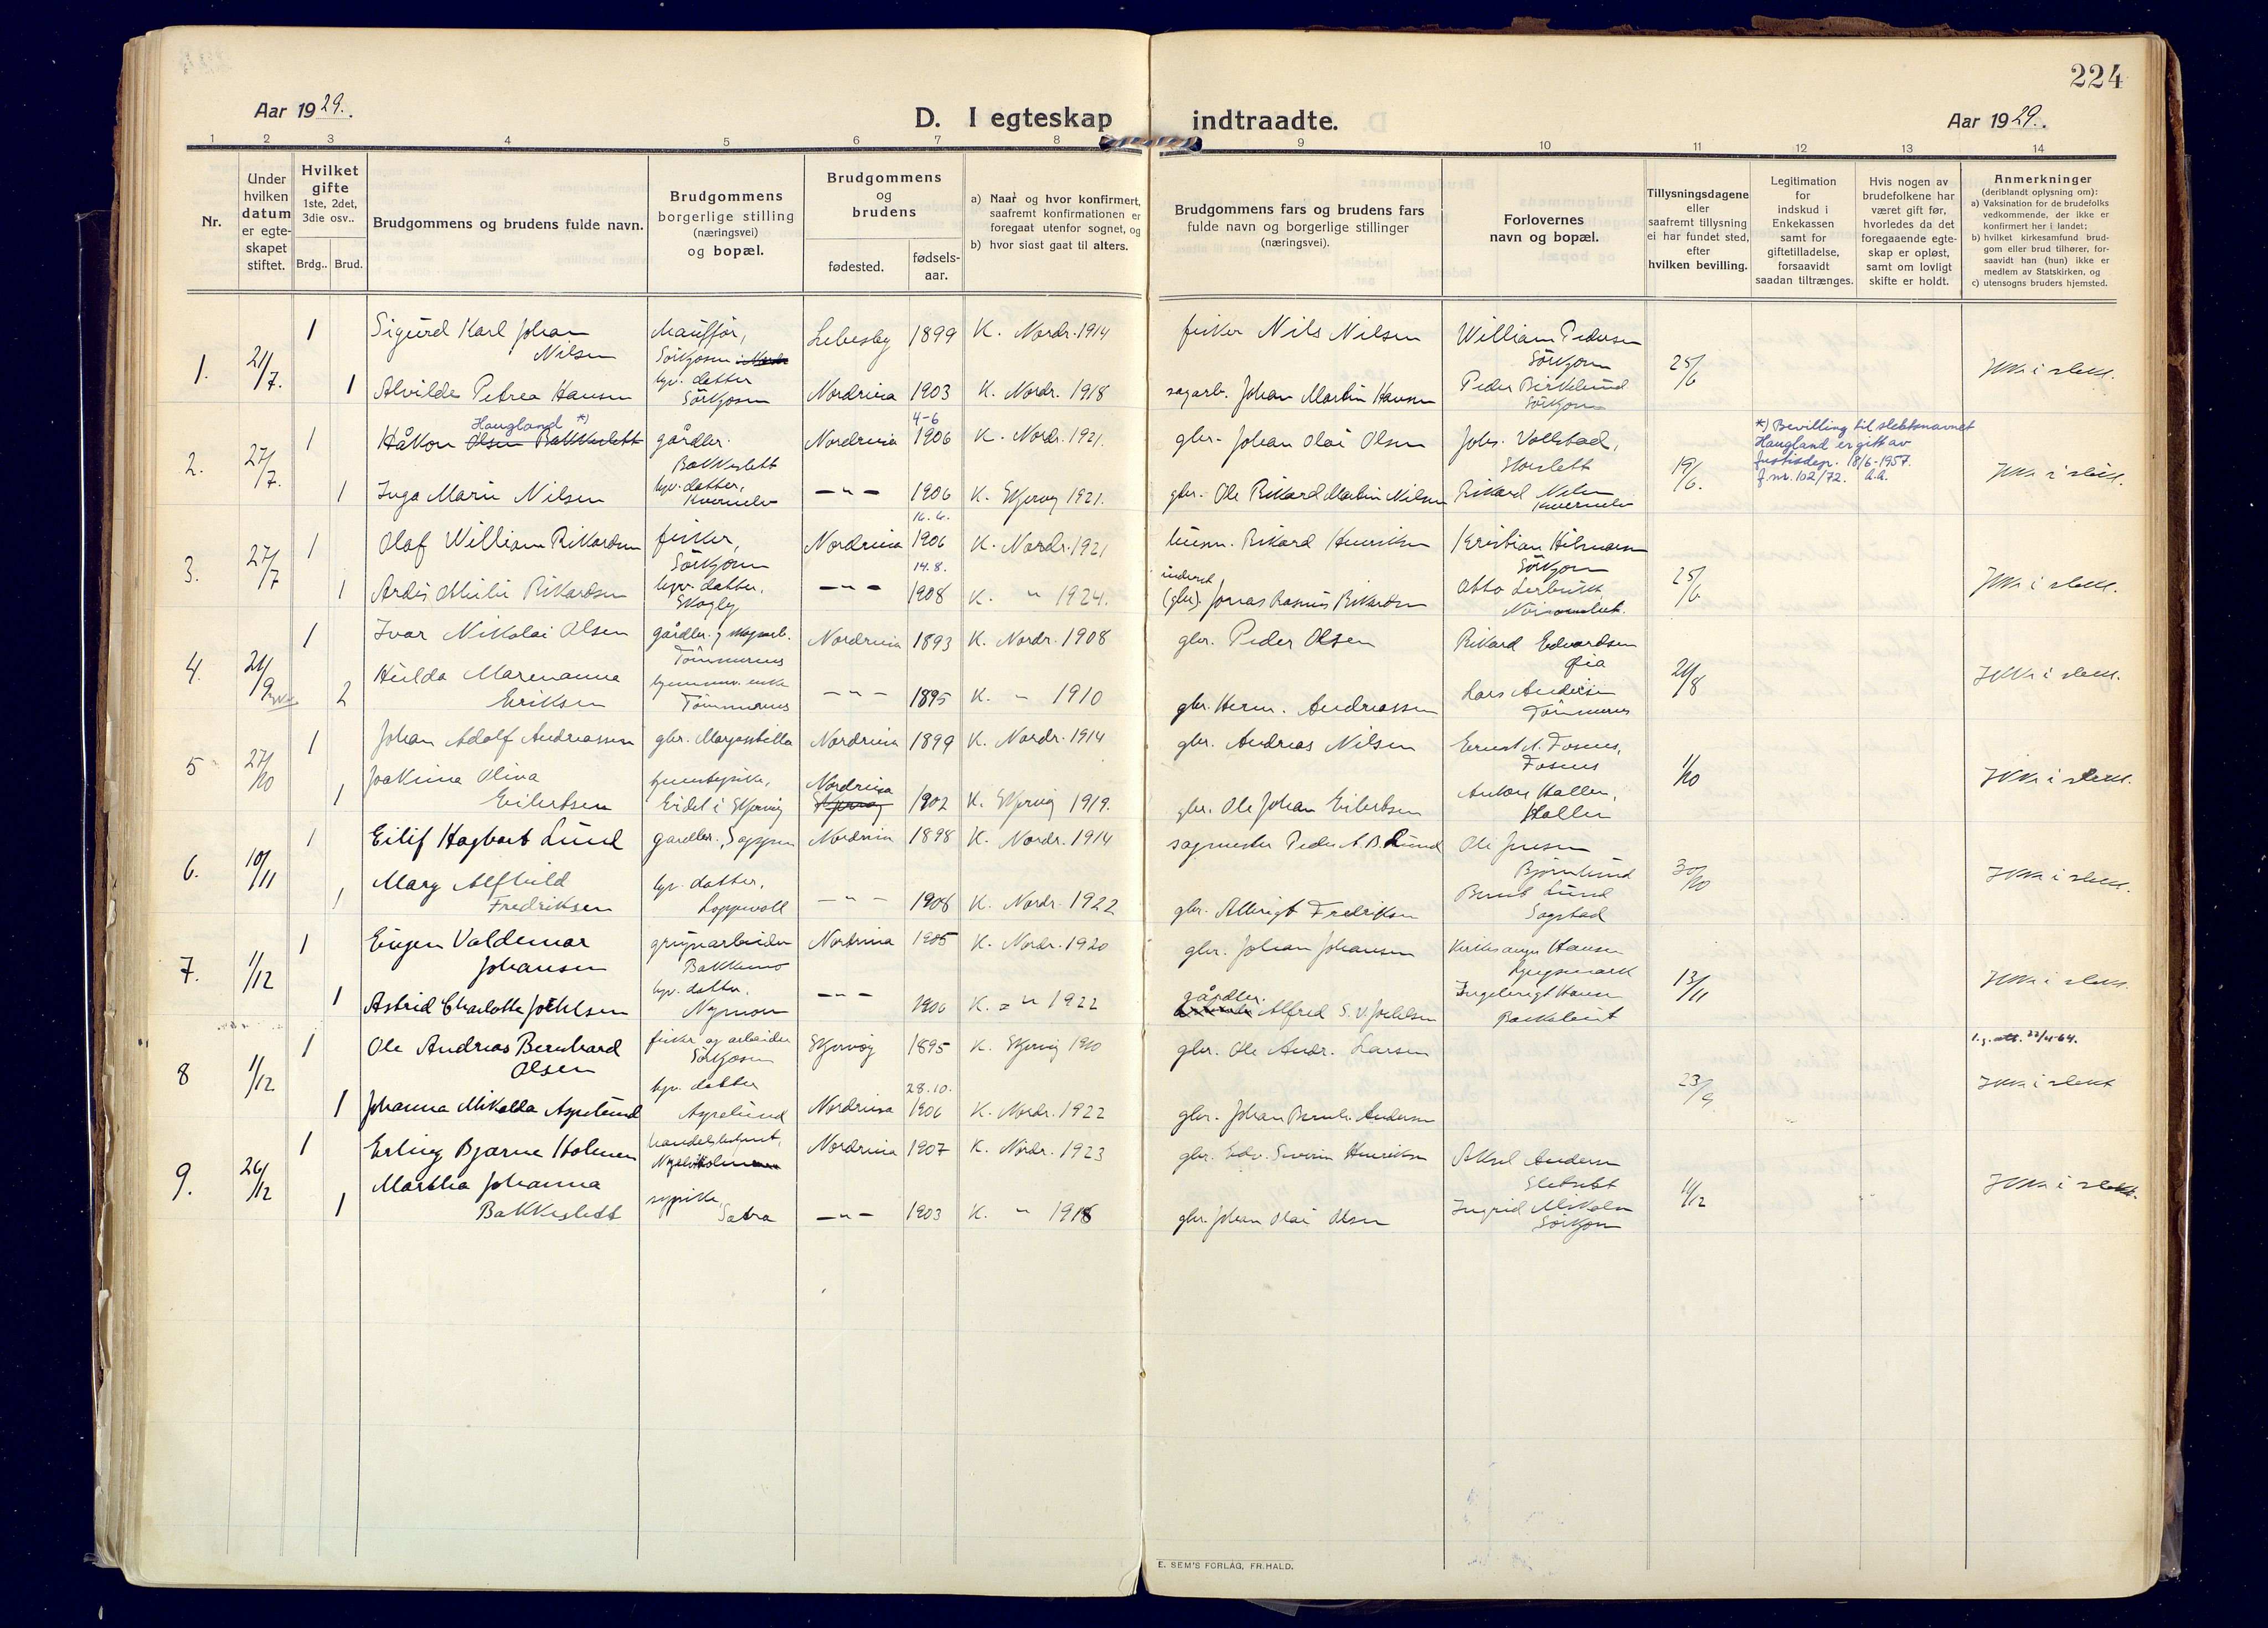 224
Aar 1929.
D. I egteskap indtraadte.
Aar 1929.
1 2 3 4 5 6 7 8 9 10 11 12 13 14
Nr.
Under hvilken datum er egteskapet stiftet.
Hvilket gifte 1ste, 2det, 3die osv..
Brdg.. Brud.
Brudgommens og brudens fulde navn.
Brudgommens borgerlige stilling (næringsvei) og bopæl.
Brudgommens og brudens
fødested.
fødselsaar.
a) Naar og hvor konfirmert, saafremt konfirmationen er foregaat utenfor sognet, og
b) hvor sidst gaat til alters.
Brudgommens fars og brudens fars fulde navn og borgerlige stillinger (næringsvei).
Forlovernes navn og bopæl.
Tillysningsdagene eller saafremt tillysning ei har fundet sted, efter hvilken bevilling.
Legitimation for indskud i Enkekassen samt for giftetilladelse, forsaavidt saadan tiltrænges.
Hvis nogen av brudefolkene har været gift før, hvorledes da det foregaaende egteskap er opløst, samt om lovligt skifte er holdt.
Anmerkninger (deriblandt oplysning om):
a) Vaksination for de brudefolks vedkommende, der ikke er konfirmert her i landet;
b) hvilket kirkesamfund brudgom eller brud tilhører, forsaavidt han (hun) ikke er medlem av Statskirken, og
c) utensogns bruders hjemsted.
1. 21/7. 1 Sigurd Karl Johan Nilsen Sörkjosen Lebesby 1899 K. Nordr. 1914 fisker Nils Nilsen William Pedersen Sörkjosen 25/6 Ikke i slekt.
1 Alvilde Petrea Hansen datter Sörkjosen Nordreisa 1903 K. Nordr. 1918 sagarb. Johan Martin Hansen Peder Birkelund Sörkjosen
2. 27/7. 1 Håkon Olsen Bakkeslett Haugland *) gårdbr. Bakkeslett Nordreisa 4-6 1906 K. Nordr. 1921. gbr. Johan Olai Olsen Johs. Vollstad, Storslett 19/6. Ikke i slekt.
*) Bevilling til slektsnavnet
Haugland er gitt av
Justisdep. 18/6-1957.
J.nr. 102/72.
1 Inga Marie Nilsen datter, Kvernelv — " — 1906 K. Skjervøy 1921. gbr. Ole Rikard Martin Nilsen Rikard Nilsen Kvernelv
3. 27/7 1 Olaf William Rikardsen fisker, Sörkjosen Nordreisa 16.6. 1906 K. Nordr. 1921 Rikard Henriksen Kristian Hilmarsen Sörkjosen 25/6 Ikke i slekt.
1 Rikardsen datter, Skogly — " — 14.8. 1908 K. " 1924. (gbr.) Jonas Rasmus Rikardsen Otto
4. 21/9 1 Ivar Nikolai Olsen gårdbr. Tömmernes Nordreisa 1893 K. Nordr. 1908 gbr. Peder Olsen Rikard Edvardsen 21/8 Ikke i slekt.
2 Hulda Marenanna Eriksen enke Tömmernes — " — 1895 K. " 1910 gbr. Herm. Andreassen Lars Andersen Tömmernes
5 27/10 1 Johan Adolf Andreassen gbr. Nordreisa 1899 K. Nordr. 1914 gbr. Andreas Nilsen Fosnes 1/10 Ikke i slekt.
1 Joakima Oliva Eilertsen Eidet i Skjervøy Nordreisa Skjervøy 1902 K. Skjervøy 1919. gbr. Ole Johan Eilertsen Anton Hallen, Hallen
6. 10/11 1 Eilif Hagbart Lund gårdbr. Nordreisa 1898 K. Nordr. 1914 sagmester Peder A. B. Lund Ole Jensen Bjørnlund 30/10 Ikke i slekt.
1 Mary Alfhild Fredriksen datter, — " — 1908 K. Nordr. 1922 gbr. Albrigt Fredriksen Bernt Lund Sagstad
7. 1/12 1 Eugen Valdemar Johansen Bakkemo Nordreisa 1905 K. Nordr. 1920 gbr. Johan Johansen Hansen 13/11 Ikke i slekt.
1 Astrid Charlotte Joehlsen datter. — " — 1906 K. " 1922 gårdbr. Alfred S. V. Joehlsen Ingebrigt Hansen
8 1/12 1 Ole Andreas Bernhard Olsen fisker og arbeider Sörkjosen Skjervøy 1895 K. Skjervøy 1910 gbr. Ole Andr. Larsen 23/9 Ikke i slekt
1 Johanna Mikalda Aspelund datter Aspelund Nordreisa 28.10. 1906 K. Nordr. 1922 gbr. Johan Andersen
9. 26/12 1 Erling Bjarne Holmen Nordreisa 1907 K. Nordr. 1923 gbr. Edv. Severin Henriksen Aksel Andersen 11/12 Ikke i slekt.
1 Martha Johanna Bakkeslett sypike — " — 1903 K. " 1918 gbr. Johan Olai Olsen Ingrid Sörkjosen
E. SEM'S FORLAG, FR.HALD.